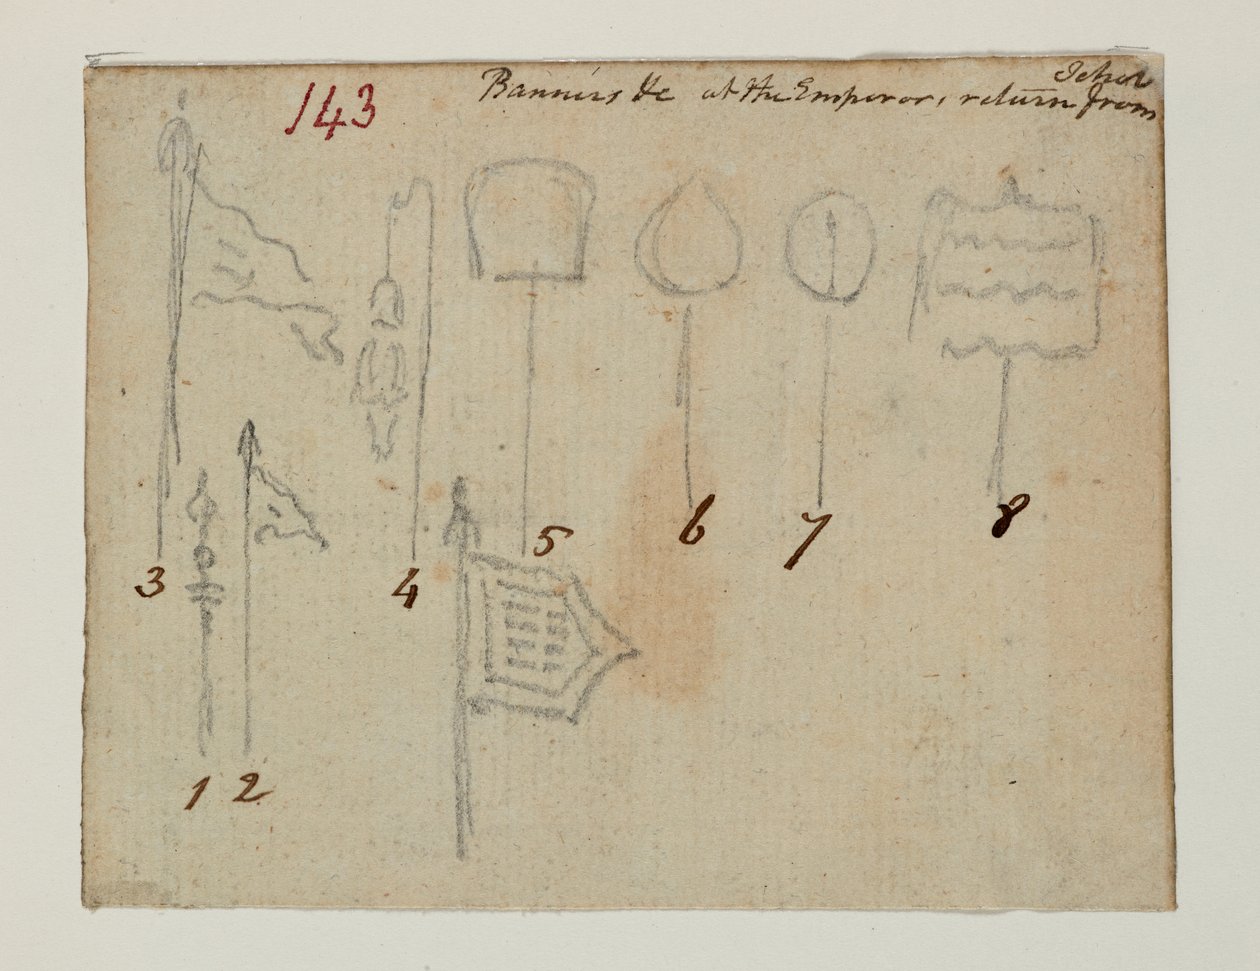 143
Banners &c at the Emperor's return from
Jehol
5
6
7
8
3
4
1
2